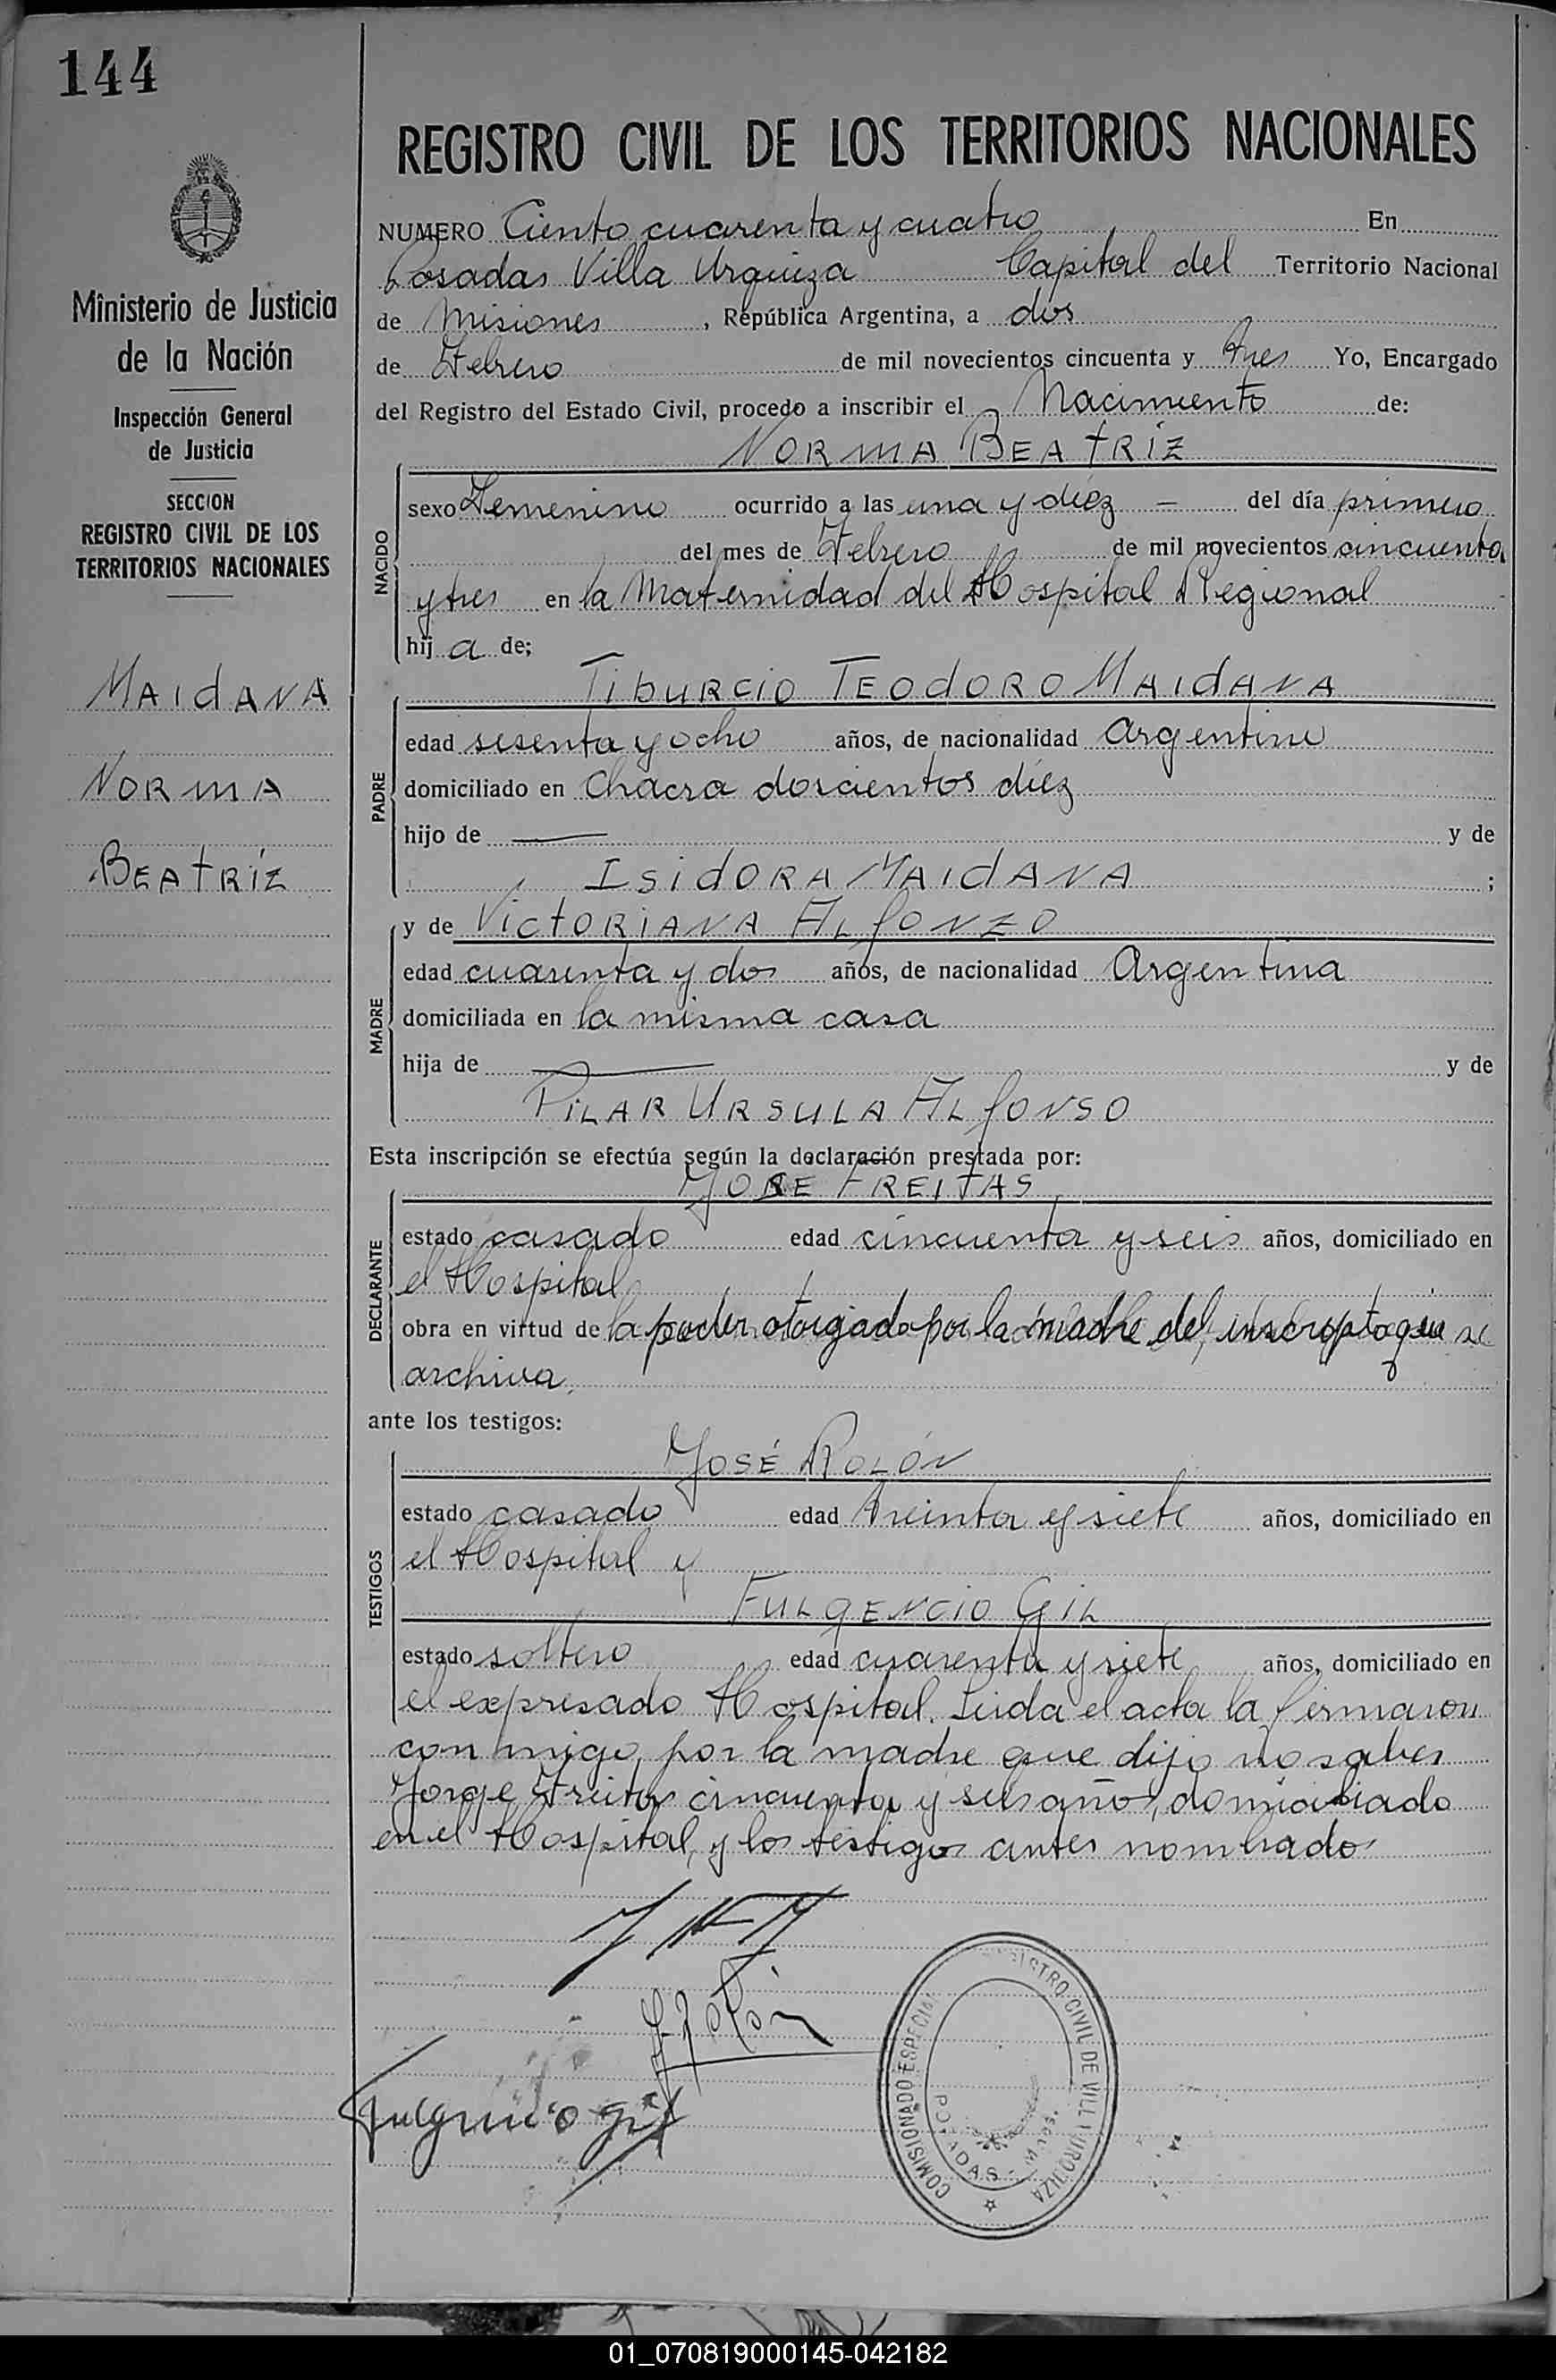 144
Ministerio de Justicia
de la Nación
Inspección General
de Justicia
SECCION
REGISTRO CIVIL DE LOS
TERRITORIOS NACIONALES
MAIdANA
NORMA
BEAtRíZ
REGISTRO CIVIL DE LOS TERRITORIOS NACIONALES
NUMERO Ciento cuarenta y cuatro En
Posadas Villa Urquiza Capital del Territorio Nacional
de Misiones, República Argentina, a dos
de Febrero de mil novecientos cincuenta y tres Yo, Encargado
del Registro del Estado Civil, procedo a inscribir el Nacimiento de:
NORMA BEAtRíZ
NACIDO
sexo Femenino ocurrido a las una y diéz — del día primero
del mes de Febrero de mil novecientos cincuenta
y tres en la Maternidad del Hospital Regional
hij a de;
TibURCiO TEOdORO MAIdANA
PADRE
edad sesenta y ocho años, de nacionalidad Argentino
domiciliado en Chacra doscientos diéz
hijo de — y de
ISidORA MAIdANA ;
MADRE
y de VíCtORiANA ALfONZO
edad cuarenta y dos años, de nacionalidad Argentina
domiciliada en la misma casa
hija de — y de
PiLAR URSULA ALfONSO
Esta inscripción se efectúa según la declaración prestada por:
DECLARANTE
FREITAS
estado casado edad cincuenta y seis años, domiciliado en
el Hospital
obra en virtud de la poder otorgado por la madre del inscripto que se
archiva.
ante los testigos:
TESTIGOS
JOSÉ ROLÓN
estado casado edad treinta y siete años, domiciliado en
el Hospital y
FULgENCiO GiL
estado soltero edad cuarenta y siete años, domiciliado en
el expresado Hospital. Leida el acta la firmaron
con migo, por la madre que dijo no saber
Jorge Freitas cincuenta y seis años, domiciliado
en el Hospital, y los testigos antes nombrados
Fulgencio Gil
COMISIONADO ESPECIAL REGISTRO CIVIL DE VILLA URQUIZA
POSADAS - MNES.
01_070819000145-042182